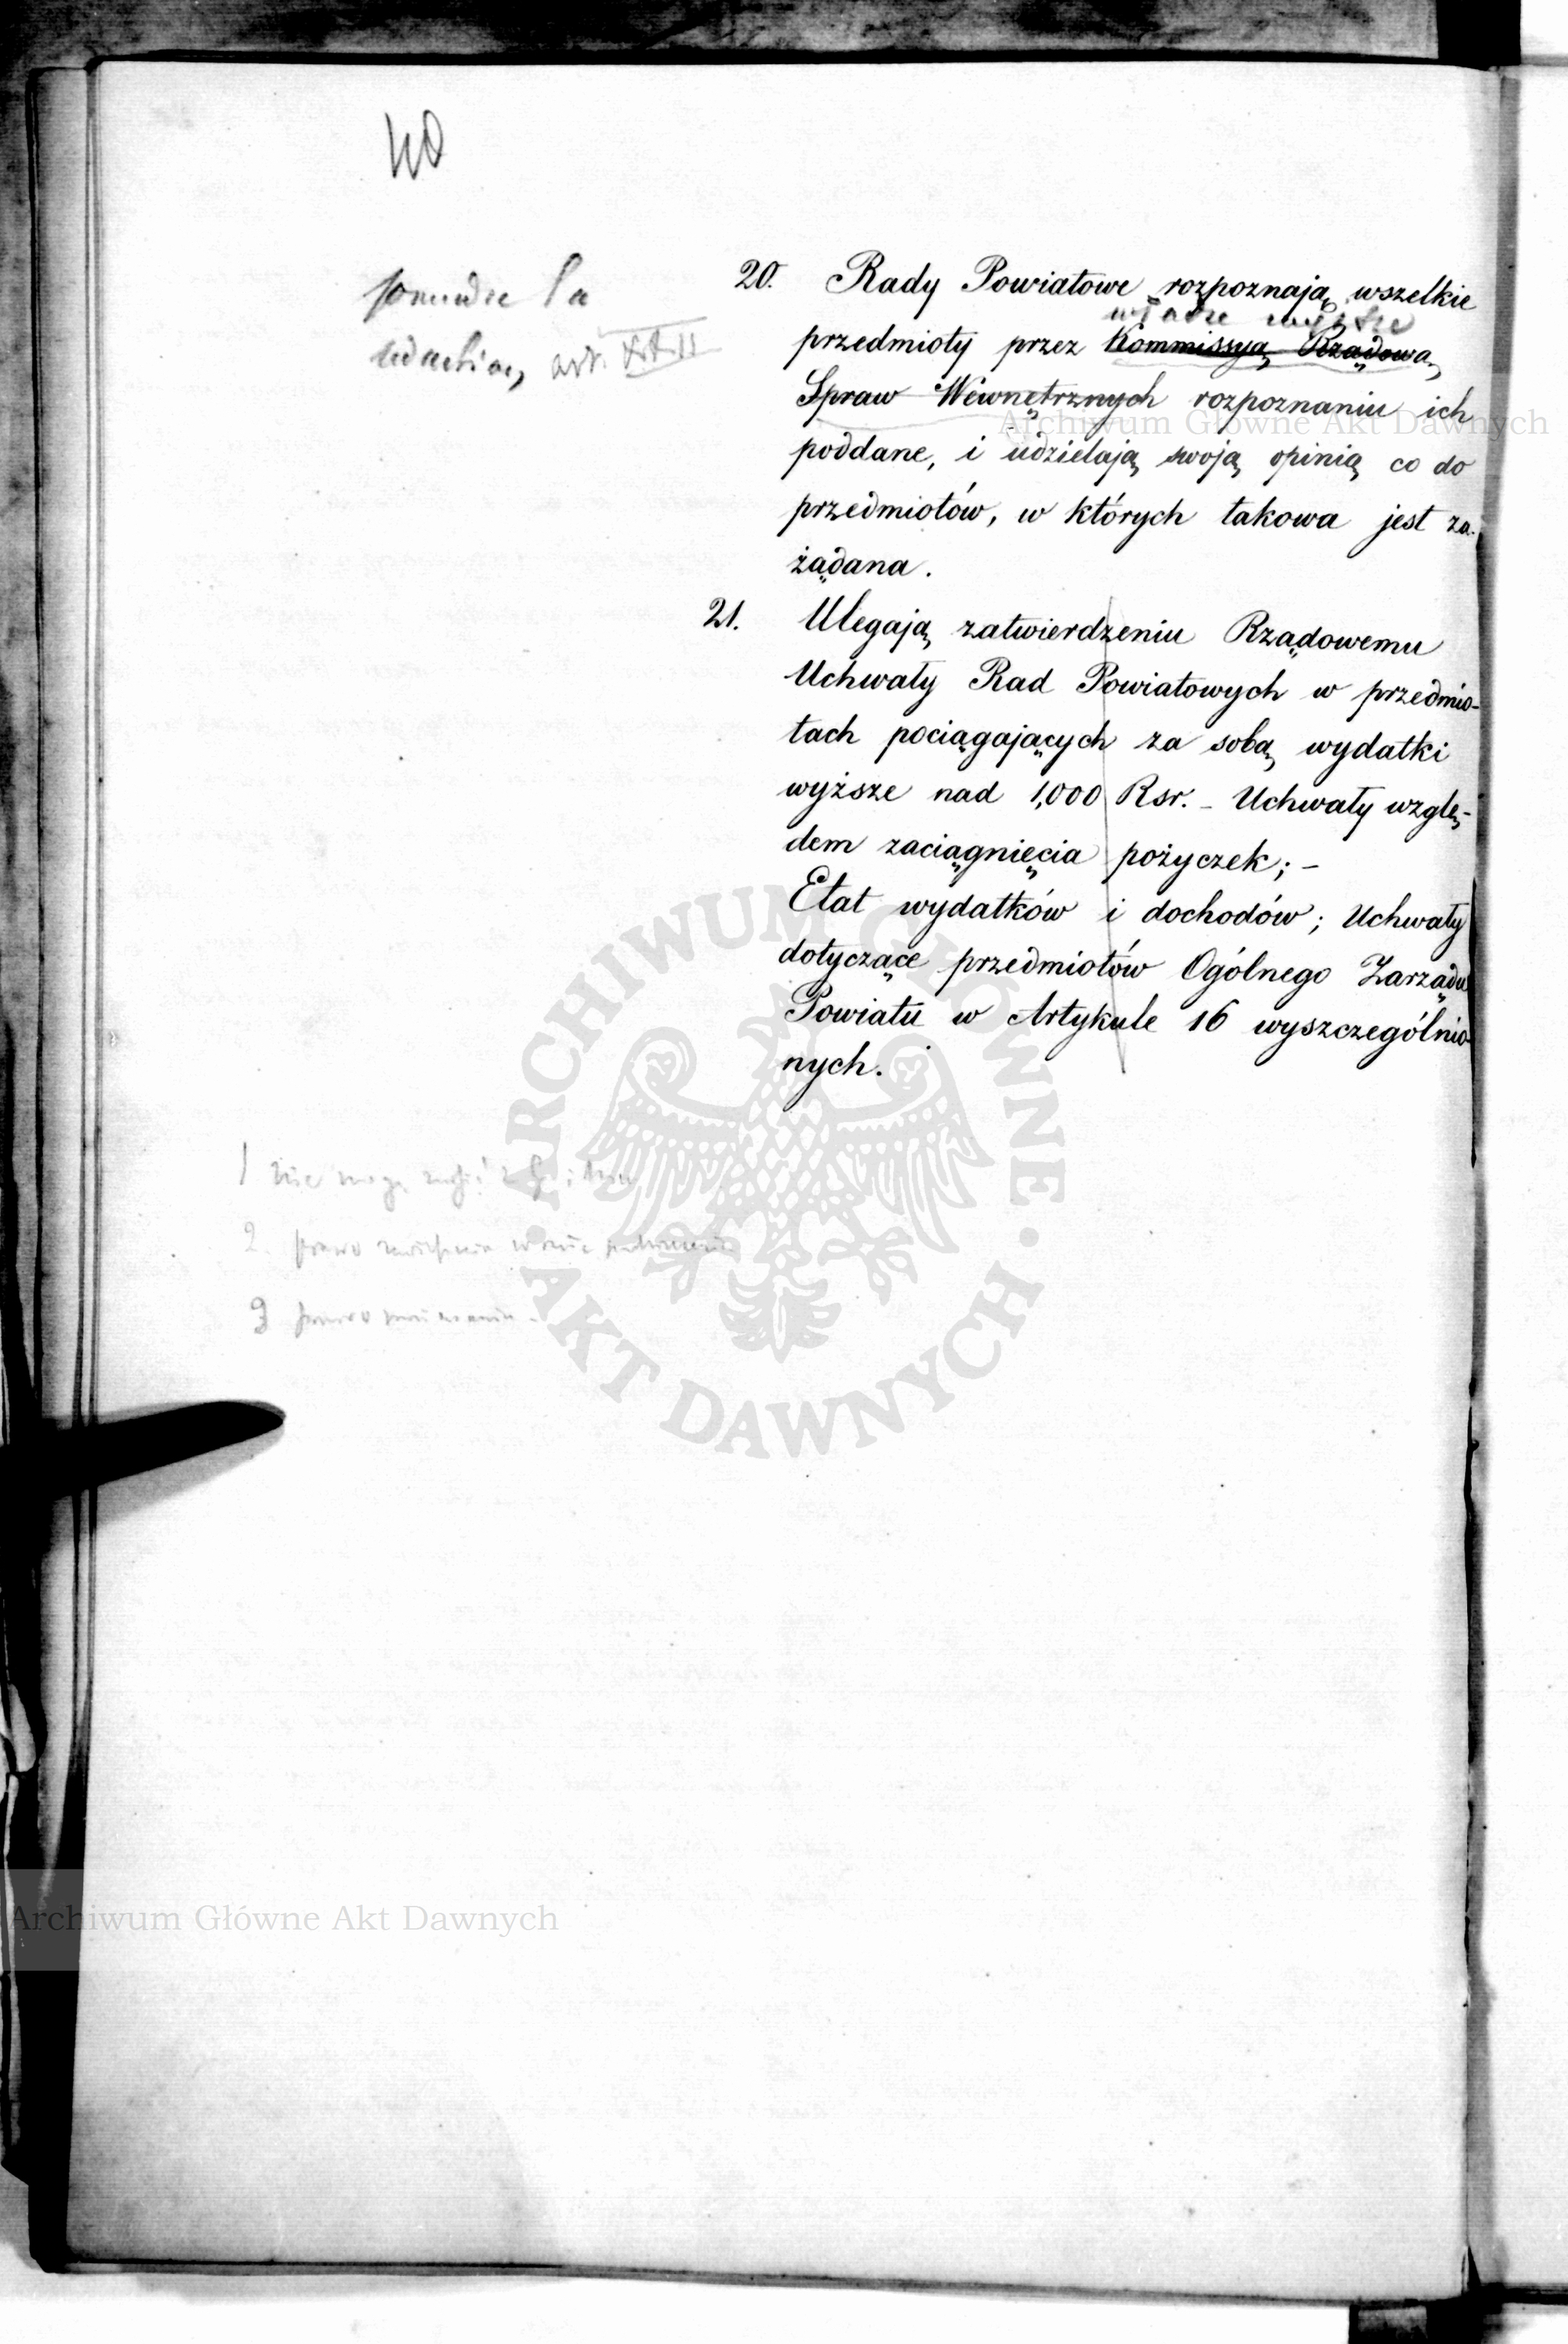 40
prendre la
rédaction, art. XXII
20. Rady Powiatowe rozpoznają wszelkie
władze wyższe
przedmioty przez Kommissyą Rządową
Spraw Wewnętrznych rozpoznaniu ich
poddane, i udzielają swoją opinią co do
przedmiotów, w których takowa jest za-
żądana.
21. Ulegają zatwierdzeniu Rządowemu
Uchwały Rad Powiatowych w przedmio-
tach pociągających za sobą wydatki
wyższe nad 1,000 Rsr. – Uchwały wzglę-
dem zaciągnięcia pożyczek; –
Etat wydatków i dochodów; Uchwały
dotyczące przedmiotów Ogólnego Zarządu
Powiatu w Artykule 16 wyszczególnio-
nych.
1 nie mogą
2. prawo
3 prawo
Archiwum Główne Akt Dawnych
ARCHIWUM GŁÓWNE · AKT DAWNYCH ·
Archiwum Główne Akt Dawnych